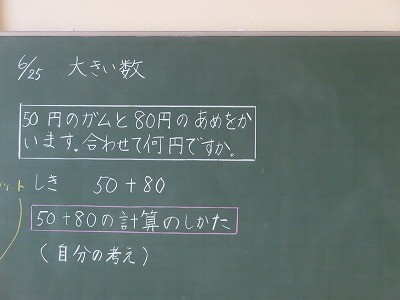 6/25 大きい数
50円のガムと80円のあめをか
います。合わせて何円ですか。
しき 50+80
50+80の計算のしかた
(自分の考え)